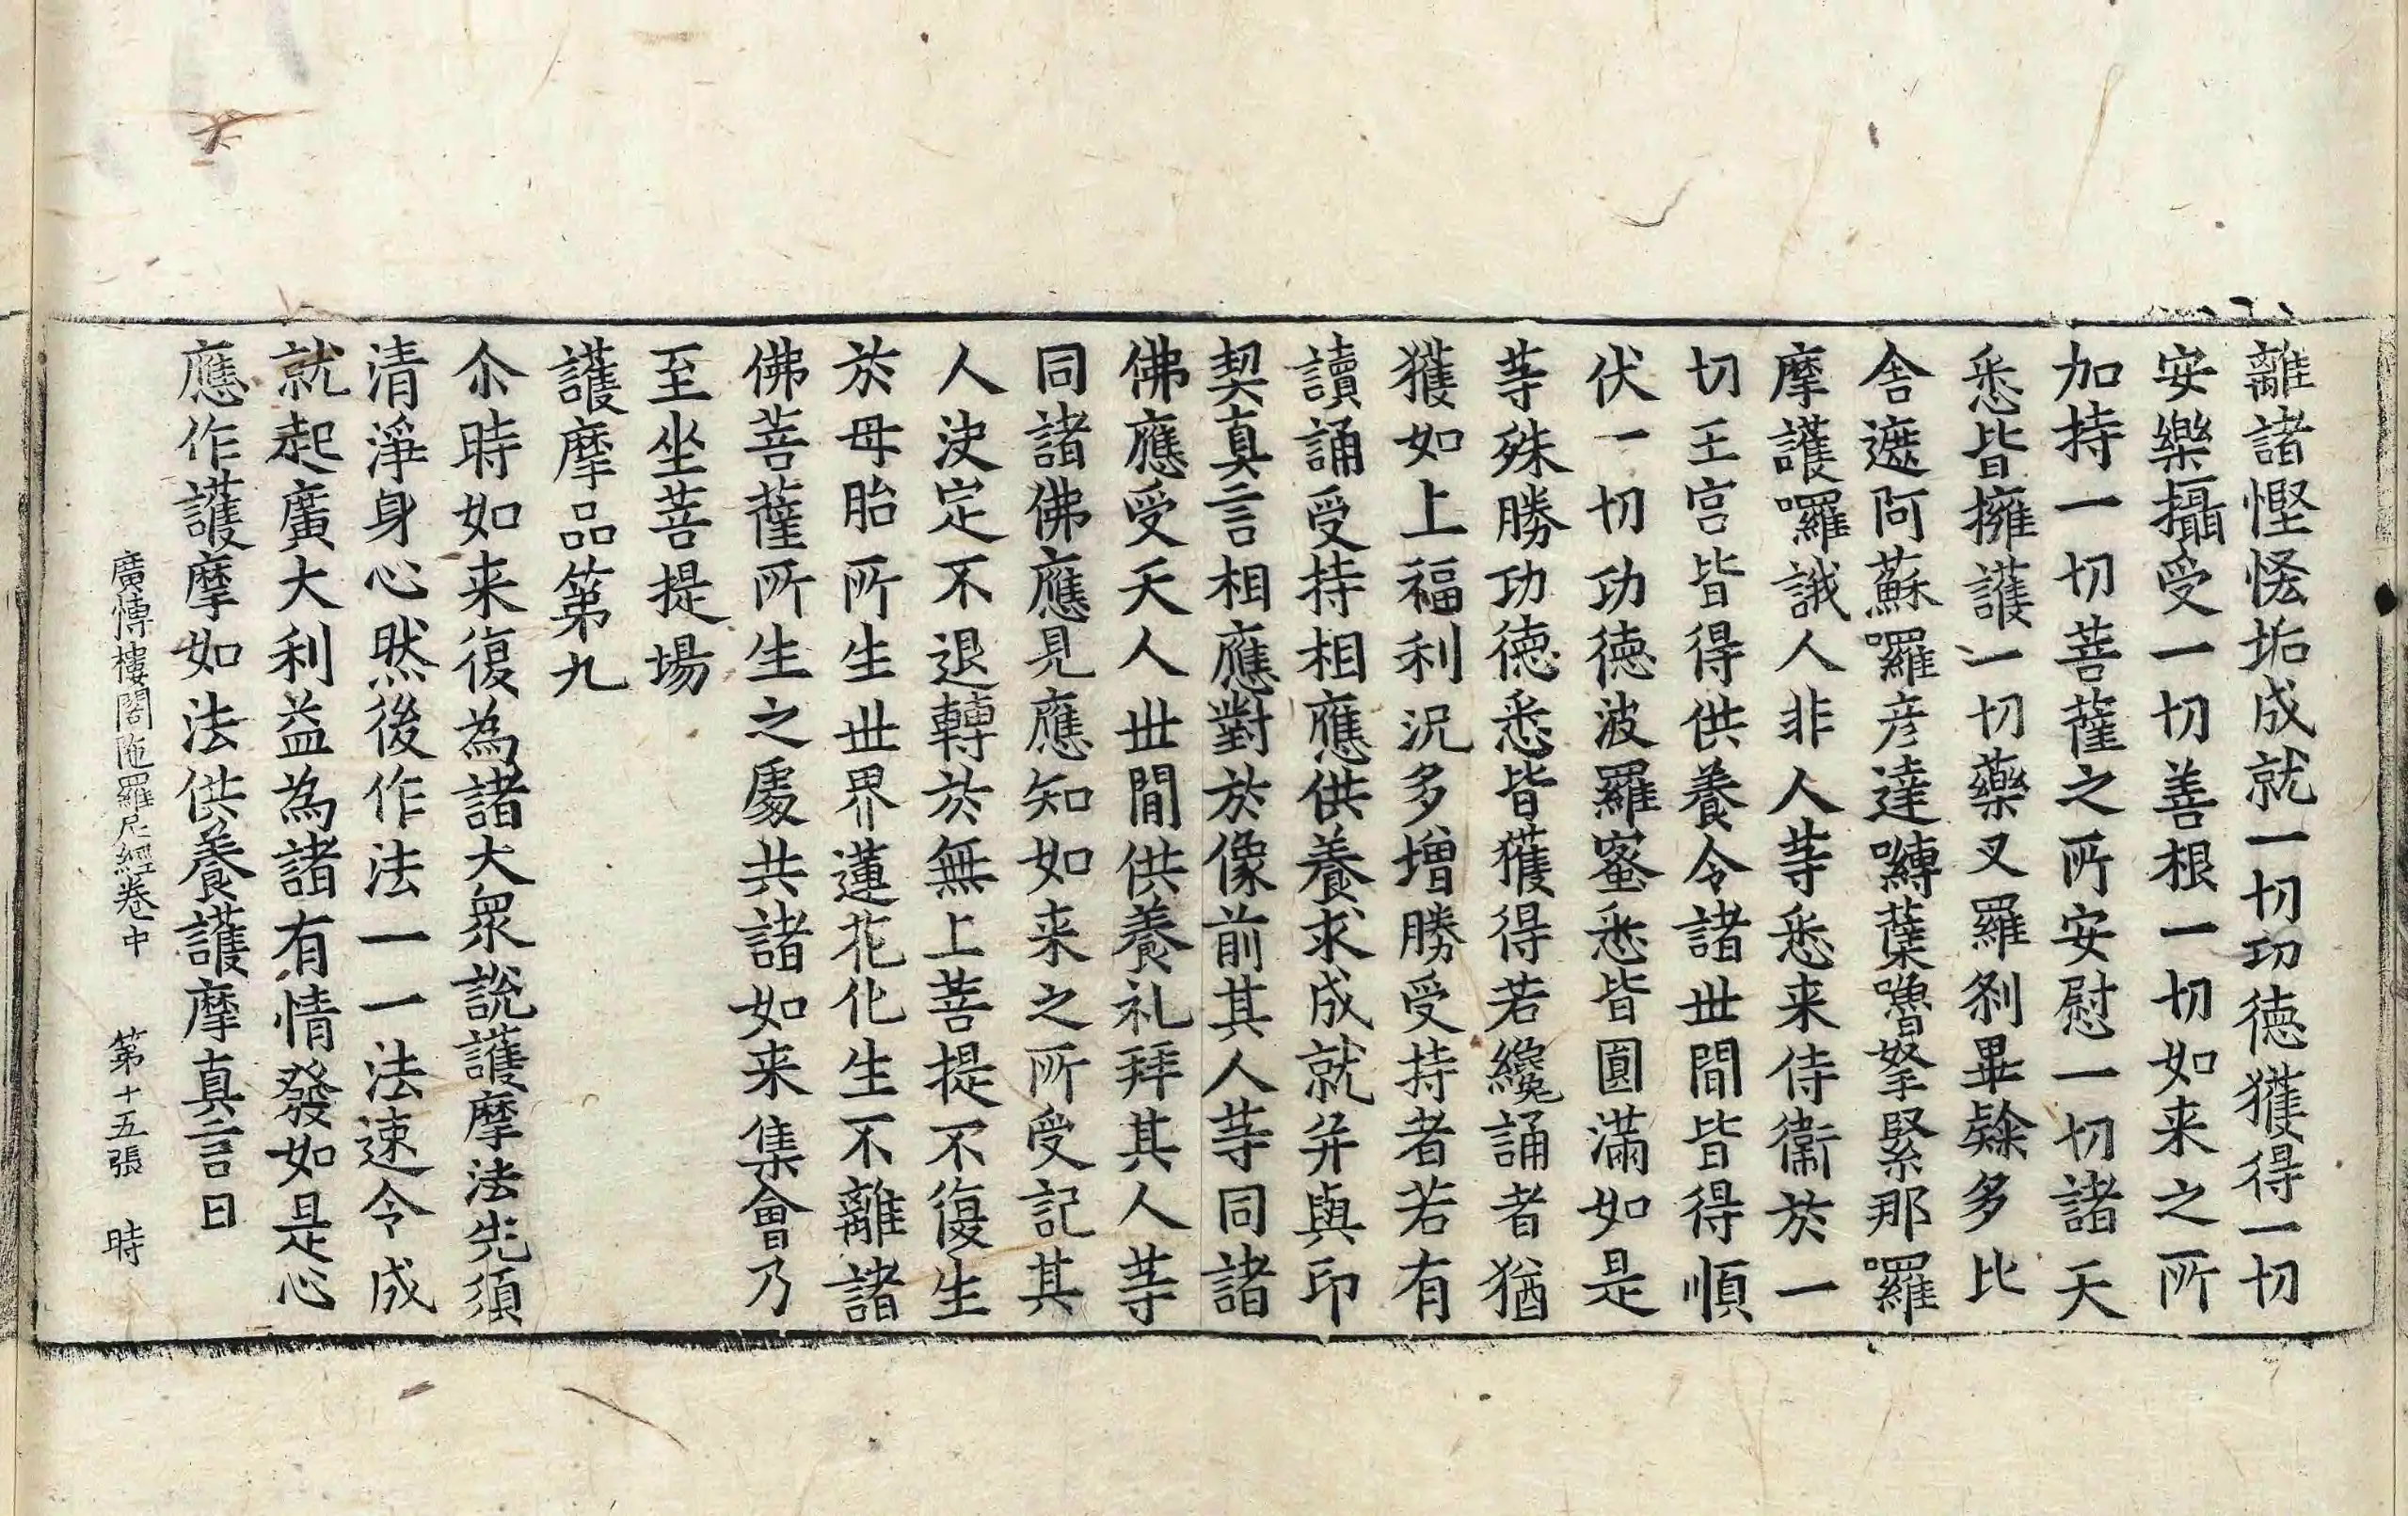 離諸慳悋垢成就一切功德獲得一切
安樂攝受一切善根一切如来之所
加持一切菩薩之所安慰一切諸天
悉皆擁護一切藥叉羅剎畢𨽻多比
舍遮阿蘇囉彦達嚩蘗嚕拏緊那囉
摩護囉誐人非人䓁悉来侍衞於一
切王宫皆得供養令諸丗間皆得順
伏一切功德波羅蜜悉皆圓滿如是
䓁殊勝功德悉皆獲得若纔誦者猶
獲如上福利況多增勝受持者若有
讀誦受持相應供養求成就并與印
契真言相應對於像前其人䓁同諸
佛應受天人丗間供養礼拜其人䓁
同諸佛應見應知如来之所受記其
人決定不退轉於無上菩提不復生
於母胎所生丗界蓮花化生不離諸
佛菩薩所生之處共諸如来集會乃
至坐菩提場
護摩品第九
尒時如来復為諸大衆說護摩法先須
清淨身心然後作法一一法速令成
就起廣大利益為諸有情發如是心
應作護摩如法供養護摩真言曰
廣愽樓閣陁羅尼經卷中 第十五張 時